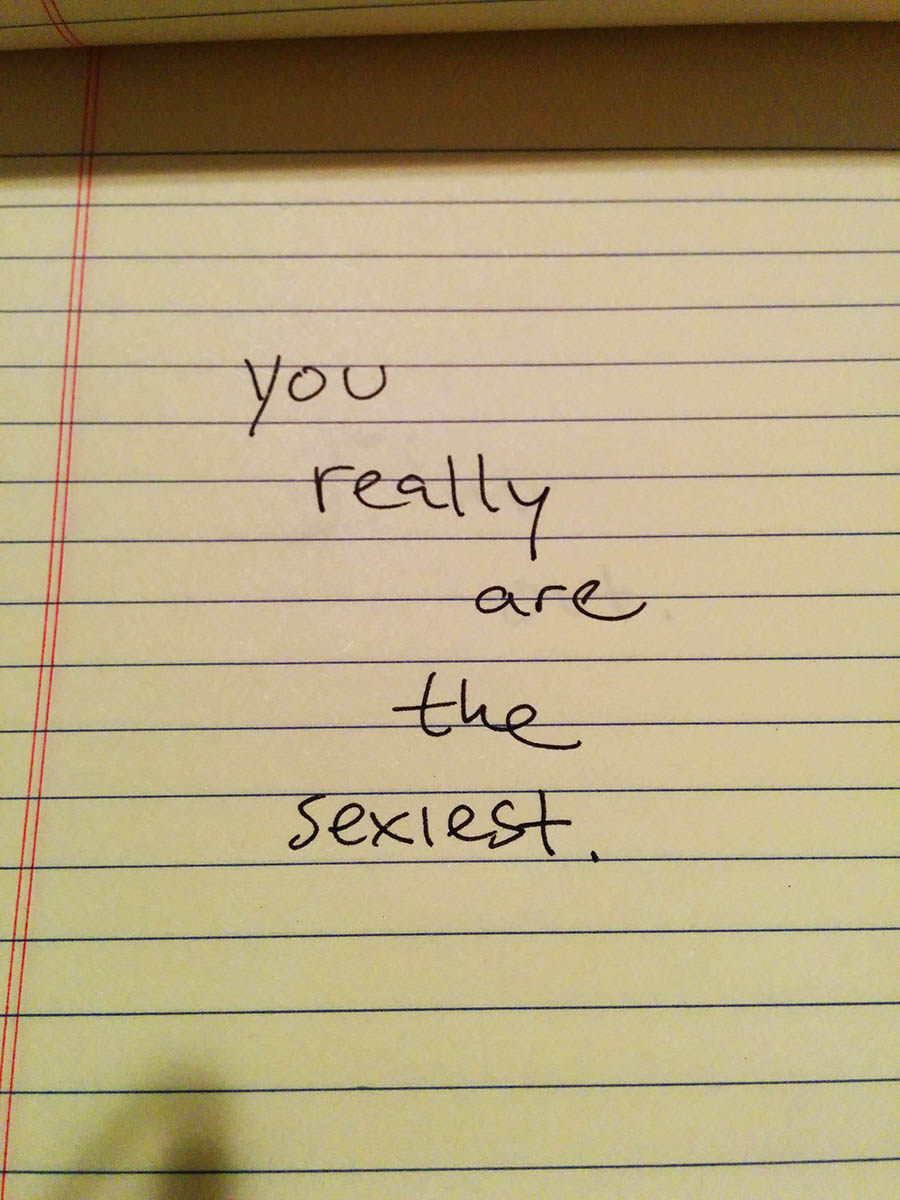 you
really
are
the
sexiest.